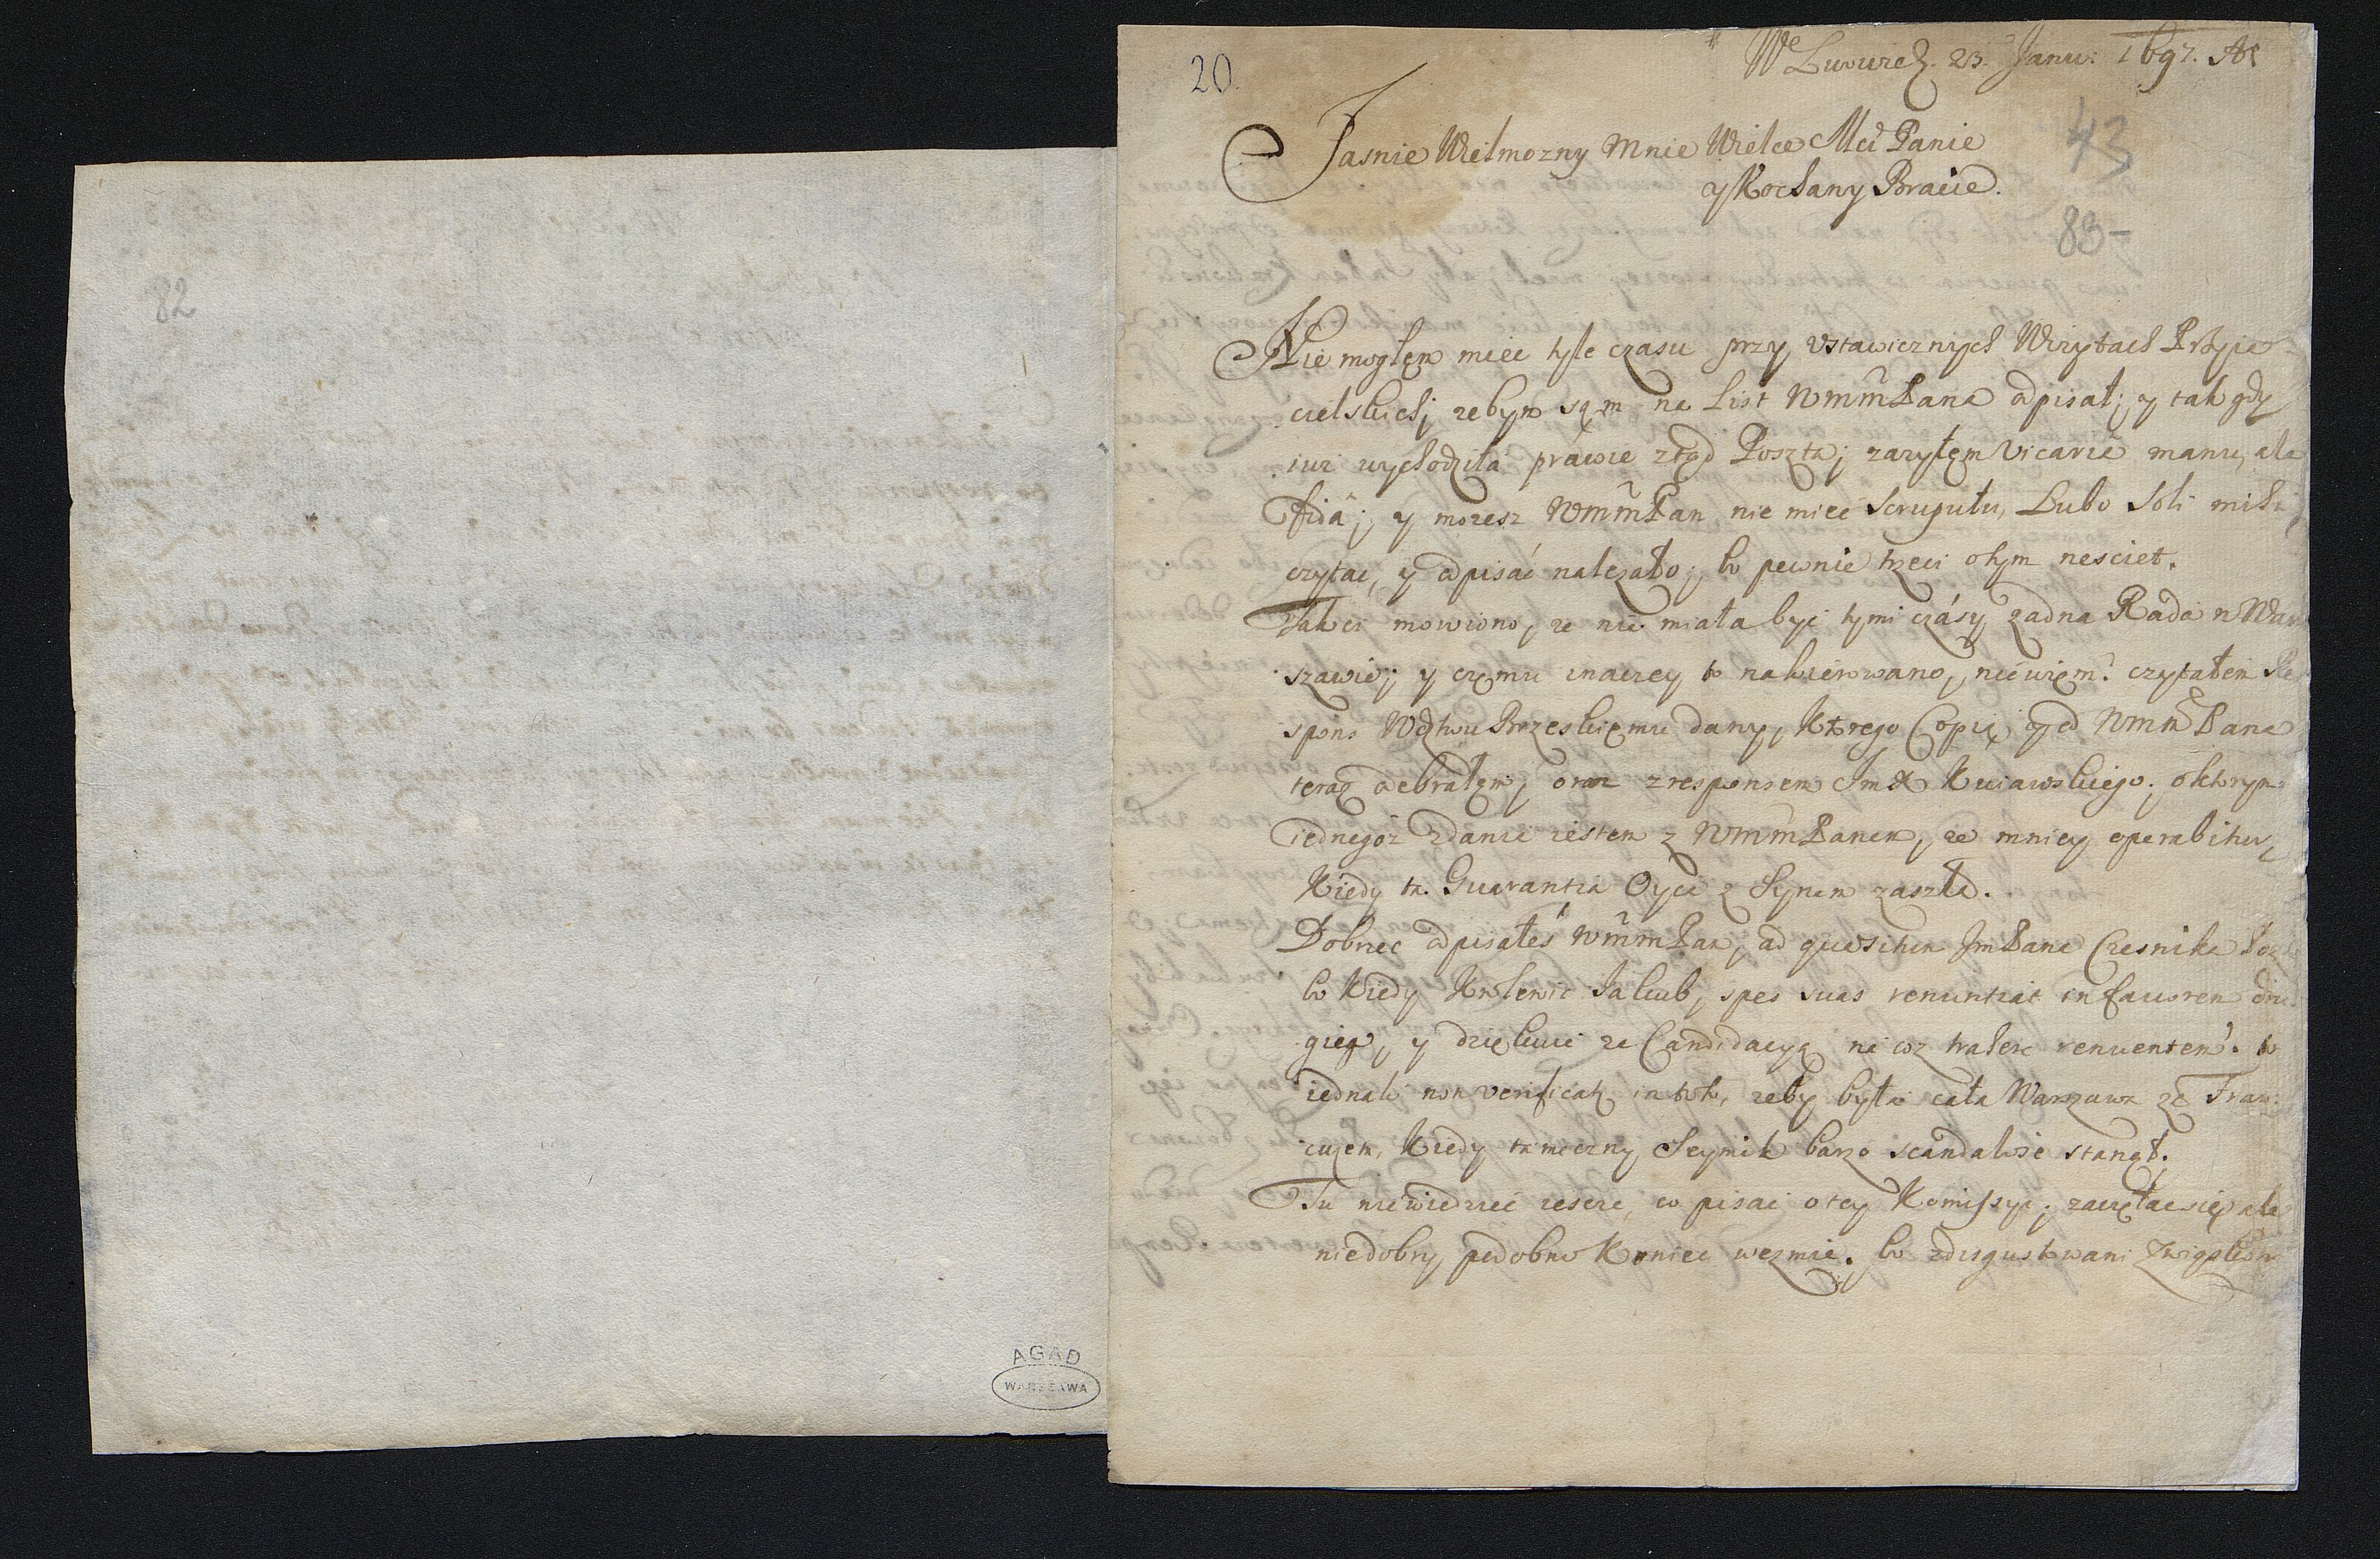 82
AGAD
WARSZAWA
20.
We Lwowie 23 Janu: 1697. A
43
Jasnie Wielmozny Mnie Wielce Mci Panie
y Kochany Bracie.
83-
Nie moglęm miec tyle czasu przy ustawicznych Wizytach Przyia
cielskich; zebym sąm na List WmmPana odpisał; y tak gdy
iuz wychodziła prawie ztąd Poszta; zazyłęm Vicarie manu, ale
fidâ; y mozesz WmmPan nie miec Scrupułu, Lubo Soli mihi
czytac, y odpisác nalezało; bo pewnie trzeci o tym nesciet.
Takci mowiono, ze nie miała byc tymi czásy zadna Rada w War
szawie; y częmu inaczey to nakierowano, niewięm? czytałem Re
spons Wdztwu Brzeskięmu dany, ktorego Copię y od WmmPana
teraz odebrałęm, oraz z responsem JmX Kuiawskiego; o ktorym
iednegoz zdanie iestem z WmmPanem, ze mniey operabitur,
Kiedy ta Guarantia Oyca z Synem zaszła.
Dobrzec odpisałeś WmmPan, ad quaesitum JmPana Czesnika
bo kiedy Krolewic Jakub, spes suas renuntiat in favorem dru
giego, y dziękuie ze Candidacyą na coz trahere renuentem? to
iednak non verificatur in toto, zeby była cała Warszawa ze Fran
cuzem, Kiedy tameczny Seymik barzo scandalose stanął.
Tu niewiedziec ieszcze, co pisac o tey Komissyi; zaczęłac się ale
niedobry podobno Koniec wezmie. bo zdisgustowani Zwiąskowi